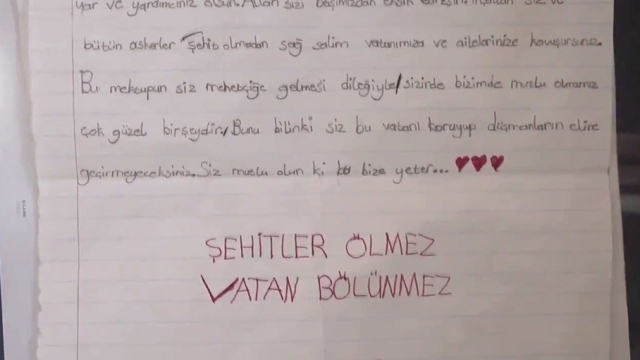 yar ve yardımcınız olsun. Allah sizi başımızdan eksik siz ve
bütün askerler şehit olmadan sağ salim vatanımıza ve ailelerinize kavuşursınız.
Bu mektupun siz mehetçiğe gelmesi dileğiyle/sizinde bizimde mutlu olmamız
çok güzel birşeydir, Bunu bilinki siz bu vatanı koruyup düşmanların eline
geçirmeyeceksiniz. Siz mutlu olun ki bize yeter... ♥♥♥
ŞEHİTLER ÖLMEZ
VATAN BÖLÜNMEZ